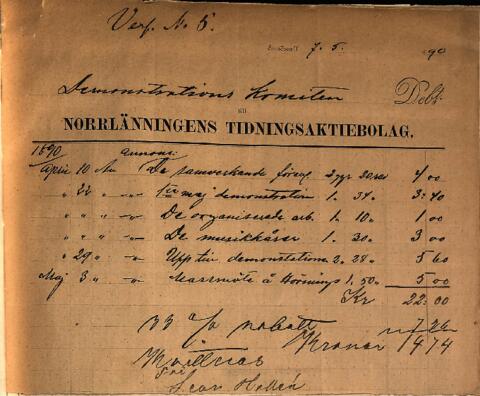 Verf. No 5.
Sundsvall 7. 5. 1890
Demonstrations Komiten Debt.
till
NORRLÄNNINGENS TIDNINGSAKTIEBOLAG.
1890 annons:
April 10 De samverkande 2 ggr 4 00
" 22 1sta maj demonstration 1. 34. 3: 40
" " " De organiserade arb. 1. 10. 1 00
" " " De musikkårer 1. 30. 3 00
" 29 Upp till demonstration 2. 28. 5 60
Maj 3 Massmöte å 1. 50. 5 00
Kr 22: 00
33 % rabatt 7 26
Kronor 14 74
Kvitteras